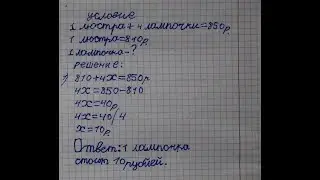 условие
1 люстра + 4 лампочки=850р
1 люстра=810р
1 лампочка-?
решение:
1) 810+4x=850р
4x=850-810
4x=40р
4x=40/4
x=10р
Ответ: 1 лампочка
стоит 10 рублей.